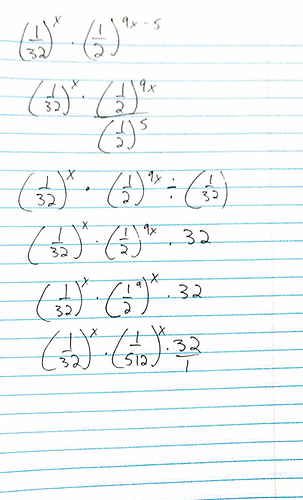 (1/32)^x · (1/2)^(9x - 5)
(1/32)^x · (1/2)^(9x) / (1/2)^5
(1/32)^x · (1/2)^(9x) ÷ (1/32)
(1/32)^x · (1/2)^(9x) · 32
(1/32)^x · (1^9/2)^x · 32
(1/32)^x · (1/512)^x · 32/1